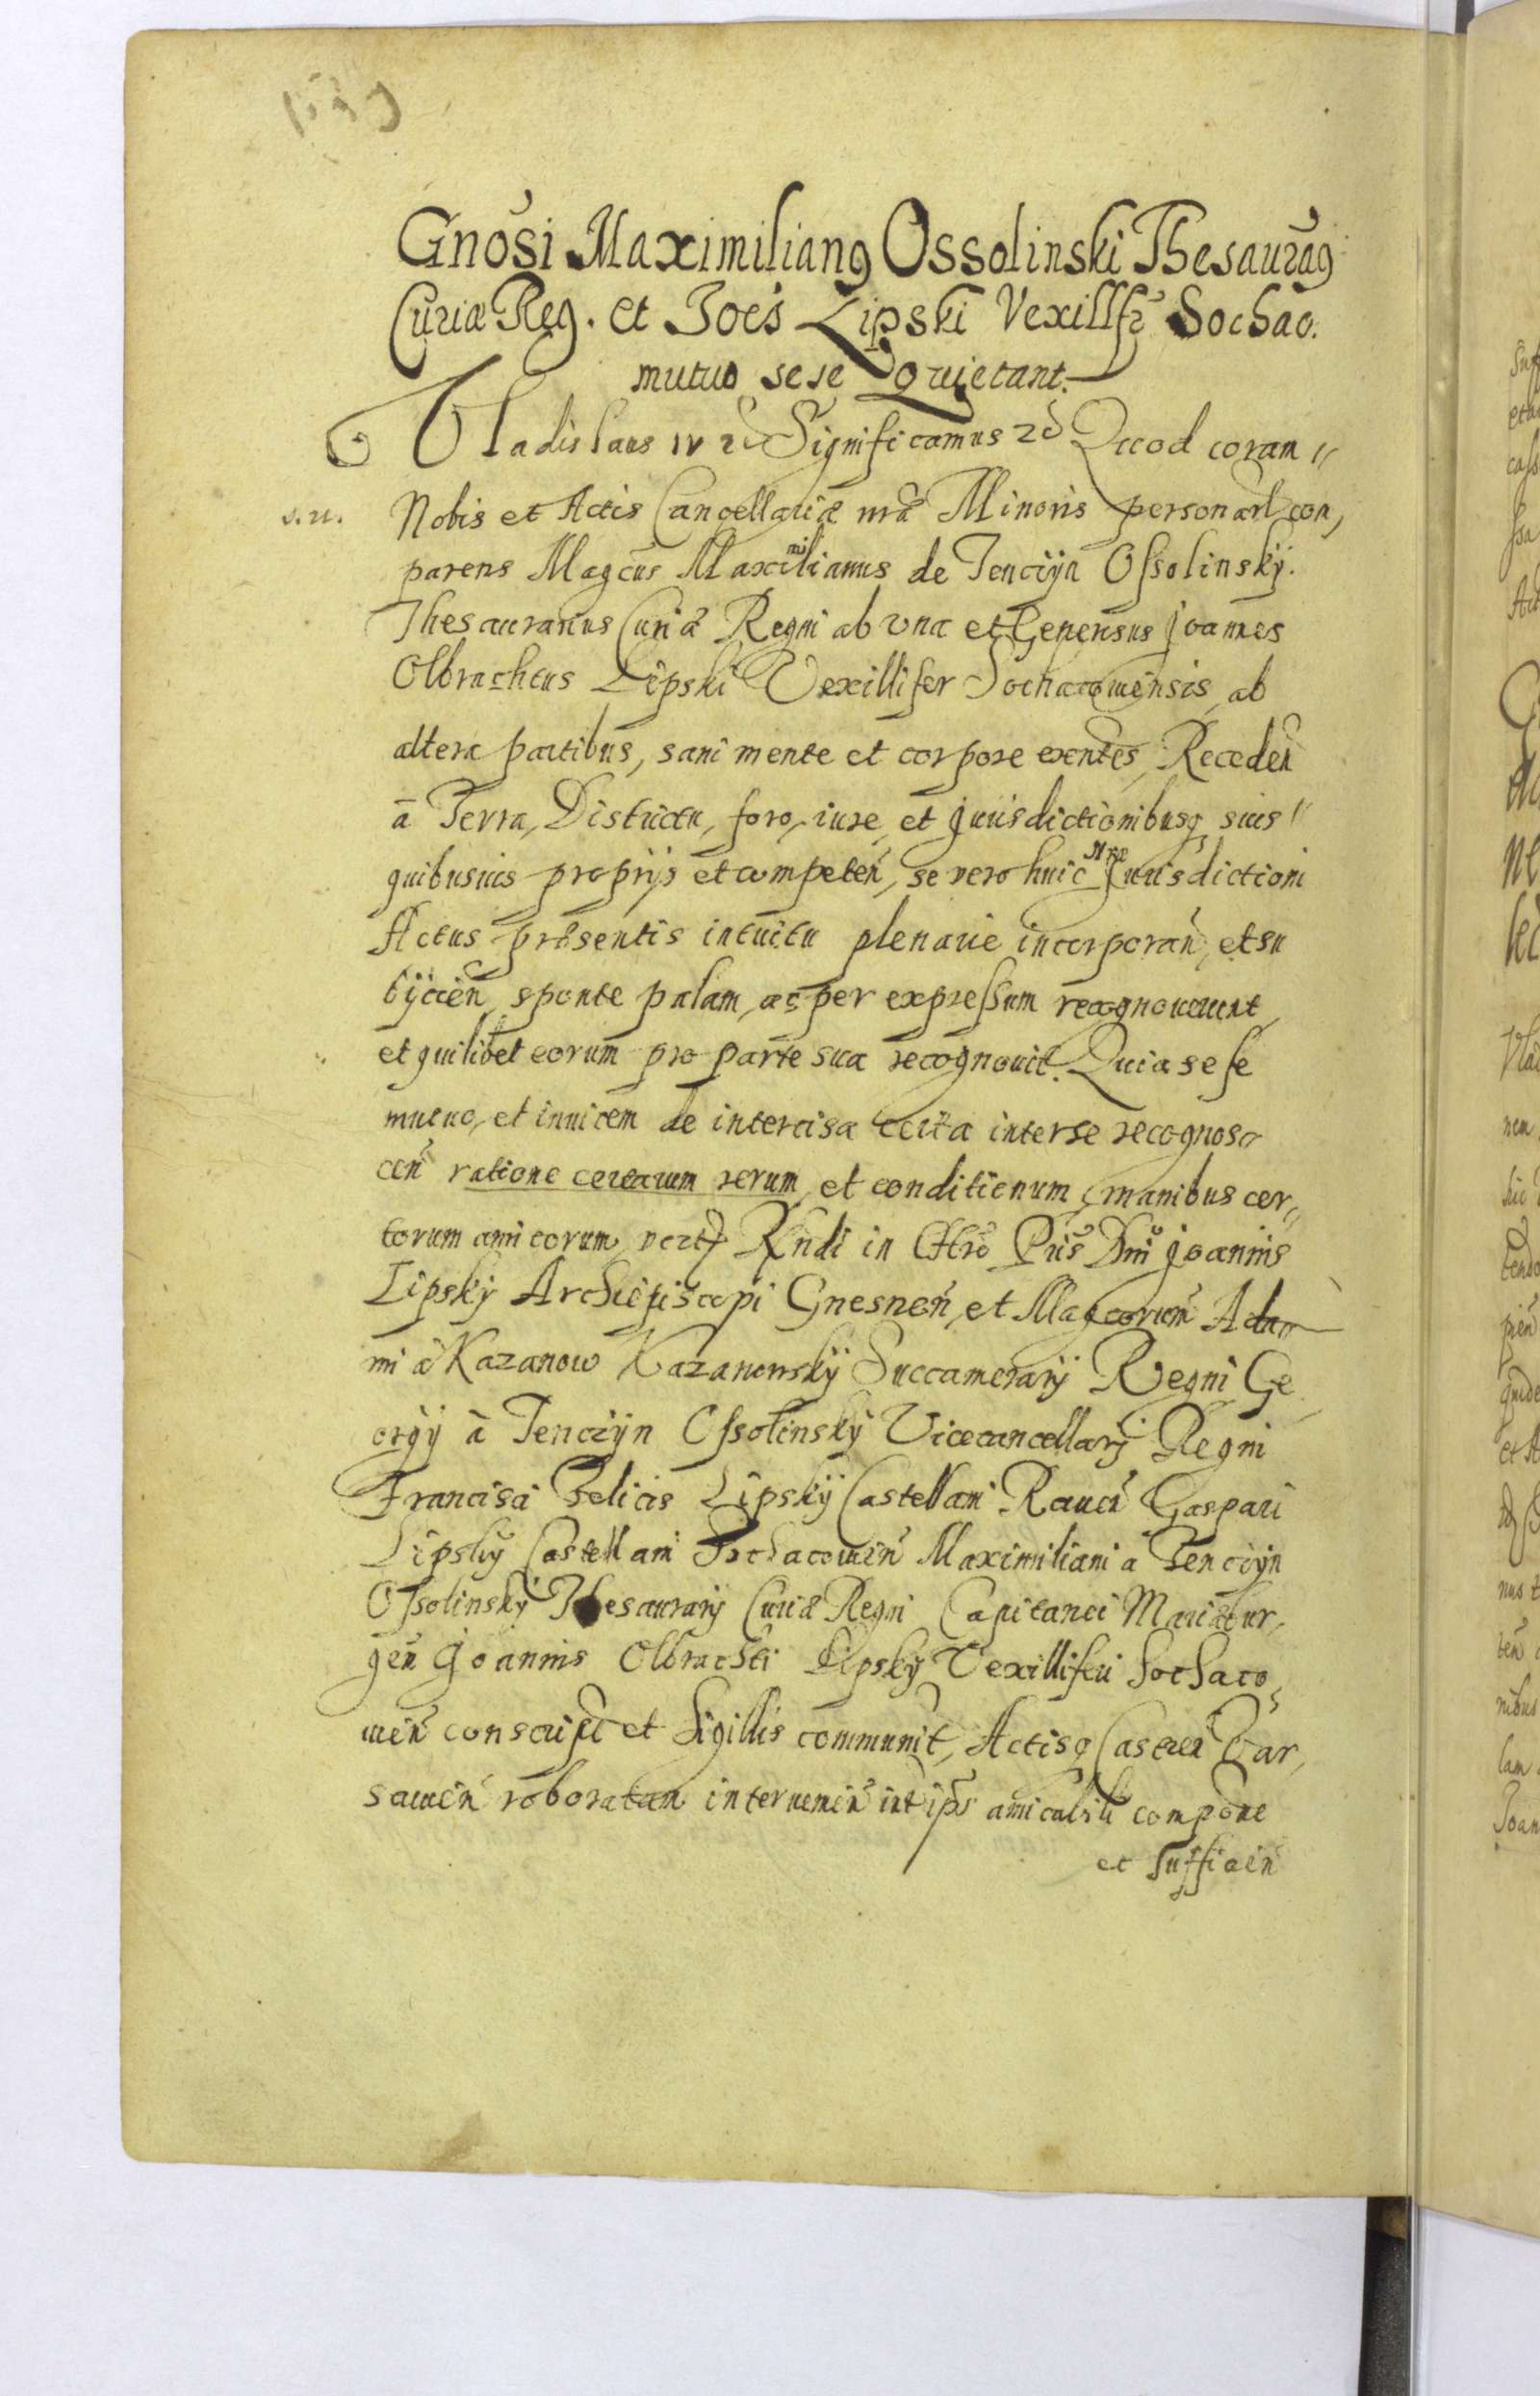 1639
Gnosi Maximilian9 Ossolinski Thesaurag
Curiæ Reg. et Joēs Lipski Vexillfr Sochac.
mutuo sese Quietant.
Vladislaus IV Significamus Quod coram
s. n. Nobis et Actis Cancellariæ nræ Minoris personal con,
parens Magcus Maximilianus de Tenczyn Ossolinsky.
Thesaurarius Curiæ Regni ab una et Generosus Joannes
Olbrachtus Lipski Vexillifer Sochacouiensis, ab
altera partibus, sani mente et corpore exentes, Receden
à Terra, Districtu, foro, iure, et jurisdictionibusq suis
quibusuis proprijs et competen, se vero huic Nræ Jurisdictioni
Actus præsentis intuitu plenarie incorporan, et su
bijcien, sponte palam, ac per expressum recognouerunt,
et quilibet eorum pro parte sua recognouit. Quia sese
mutuo, et inuicem de intercisa certa inter se recognos
cen ratione certarum rerum, et conditionum, manibus cer,
torum amicorum, Rndi in Chro Pris Dni Joannis
Lipsky Archiepiscopi Gnesnen, et Magcorum Ada
mi à Kazanow Kazanowsky Succamerarij Regni Ge
orgij à Tenczyn Ossolinsky Vicecancellarij Regni
Francisci Felicis Lipsky Castellani Rauen Gaspari
Lipsky Castellani Sochacouien Maximiliani à Tenczyn
Ossolinsky Thesaurarij Curiæ Regni Capitanei Mariæbur,
gen Joannis Olbrachti Lipsky Vexilliferi Sochaco
uien conscript et Sigillis communit, Actisq Castren Var,
sauien roboratam interuenien int ips amicabili compone
et sufficien